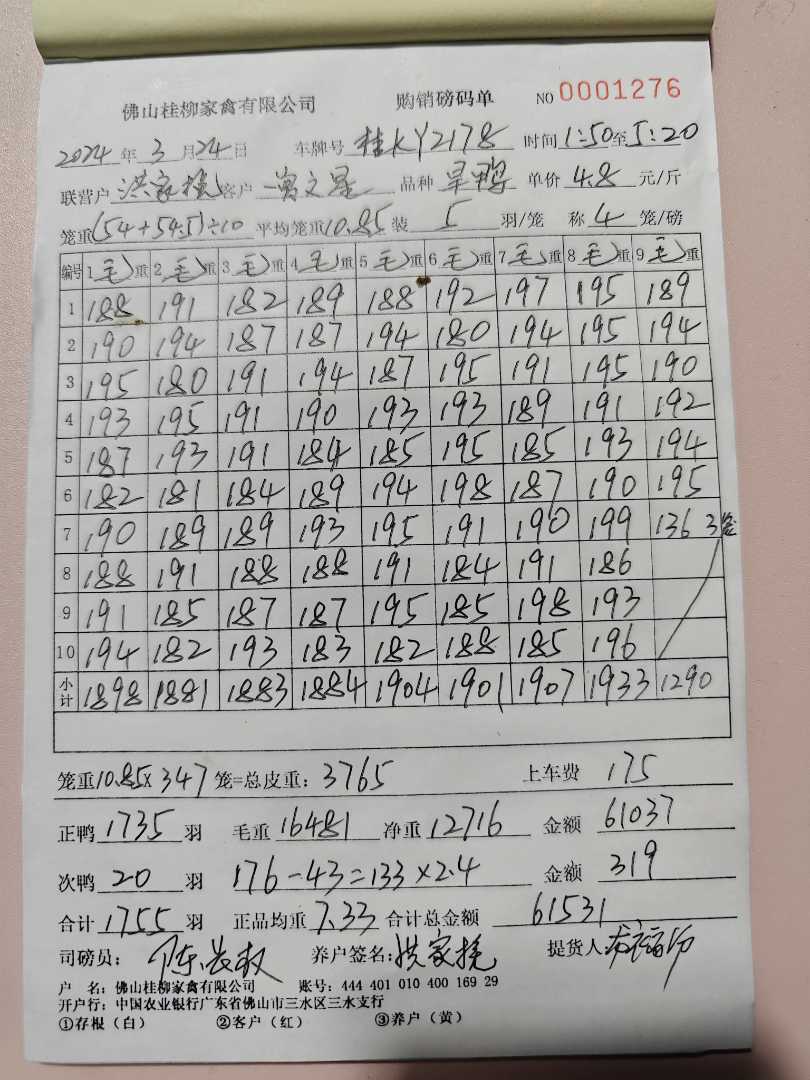 佛山桂柳家禽有限公司 购销磅码单 NO 0001276
2024年3月24日 车牌号 桂KY2178 时间 1:50至5:20
联营户 洪家 客户 曾文星 品种 旱鸭 单价 4.8 元/斤
笼重(54+54.5)÷10 平均笼重10.85 装 5 羽/笼 称 4 笼/磅
编号 1毛重 2毛重 3毛重 4毛重 5毛重 6毛重 7毛重 8毛重 9毛重
1 188 191 182 189 188 192 197 195 189
2 190 194 187 187 194 180 194 195 194
3 195 180 191 194 187 195 191 195 190
4 193 195 191 190 193 193 189 191 192
5 187 193 191 184 185 195 185 193 194
6 182 181 184 189 194 198 187 190 195
7 190 189 189 193 195 191 190 199 136 3笼
8 188 191 188 188 191 184 191 186
9 191 185 187 187 195 185 198 193
10 194 182 193 183 182 188 185 196
小计 1898 1881 1883 1884 1904 1901 1907 1933 1290
笼重10.85×347笼=总皮重：3765 上车费 175
正鸭 1735 羽 毛重 16481 净重 12716 金额 61037
次鸭 20 羽 176-43=133×2.4 金额 319
合计 1755 羽 正品均重 7.33 合计总金额 61531
司磅员： 陈 养户签名： 洪家 提货人
户 名：佛山桂柳家禽有限公司 账号：444 401 010 400 169 29
开户行：中国农业银行广东省佛山市三水区三水支行
①存根（白） ②客户（红） ③养户（黄）